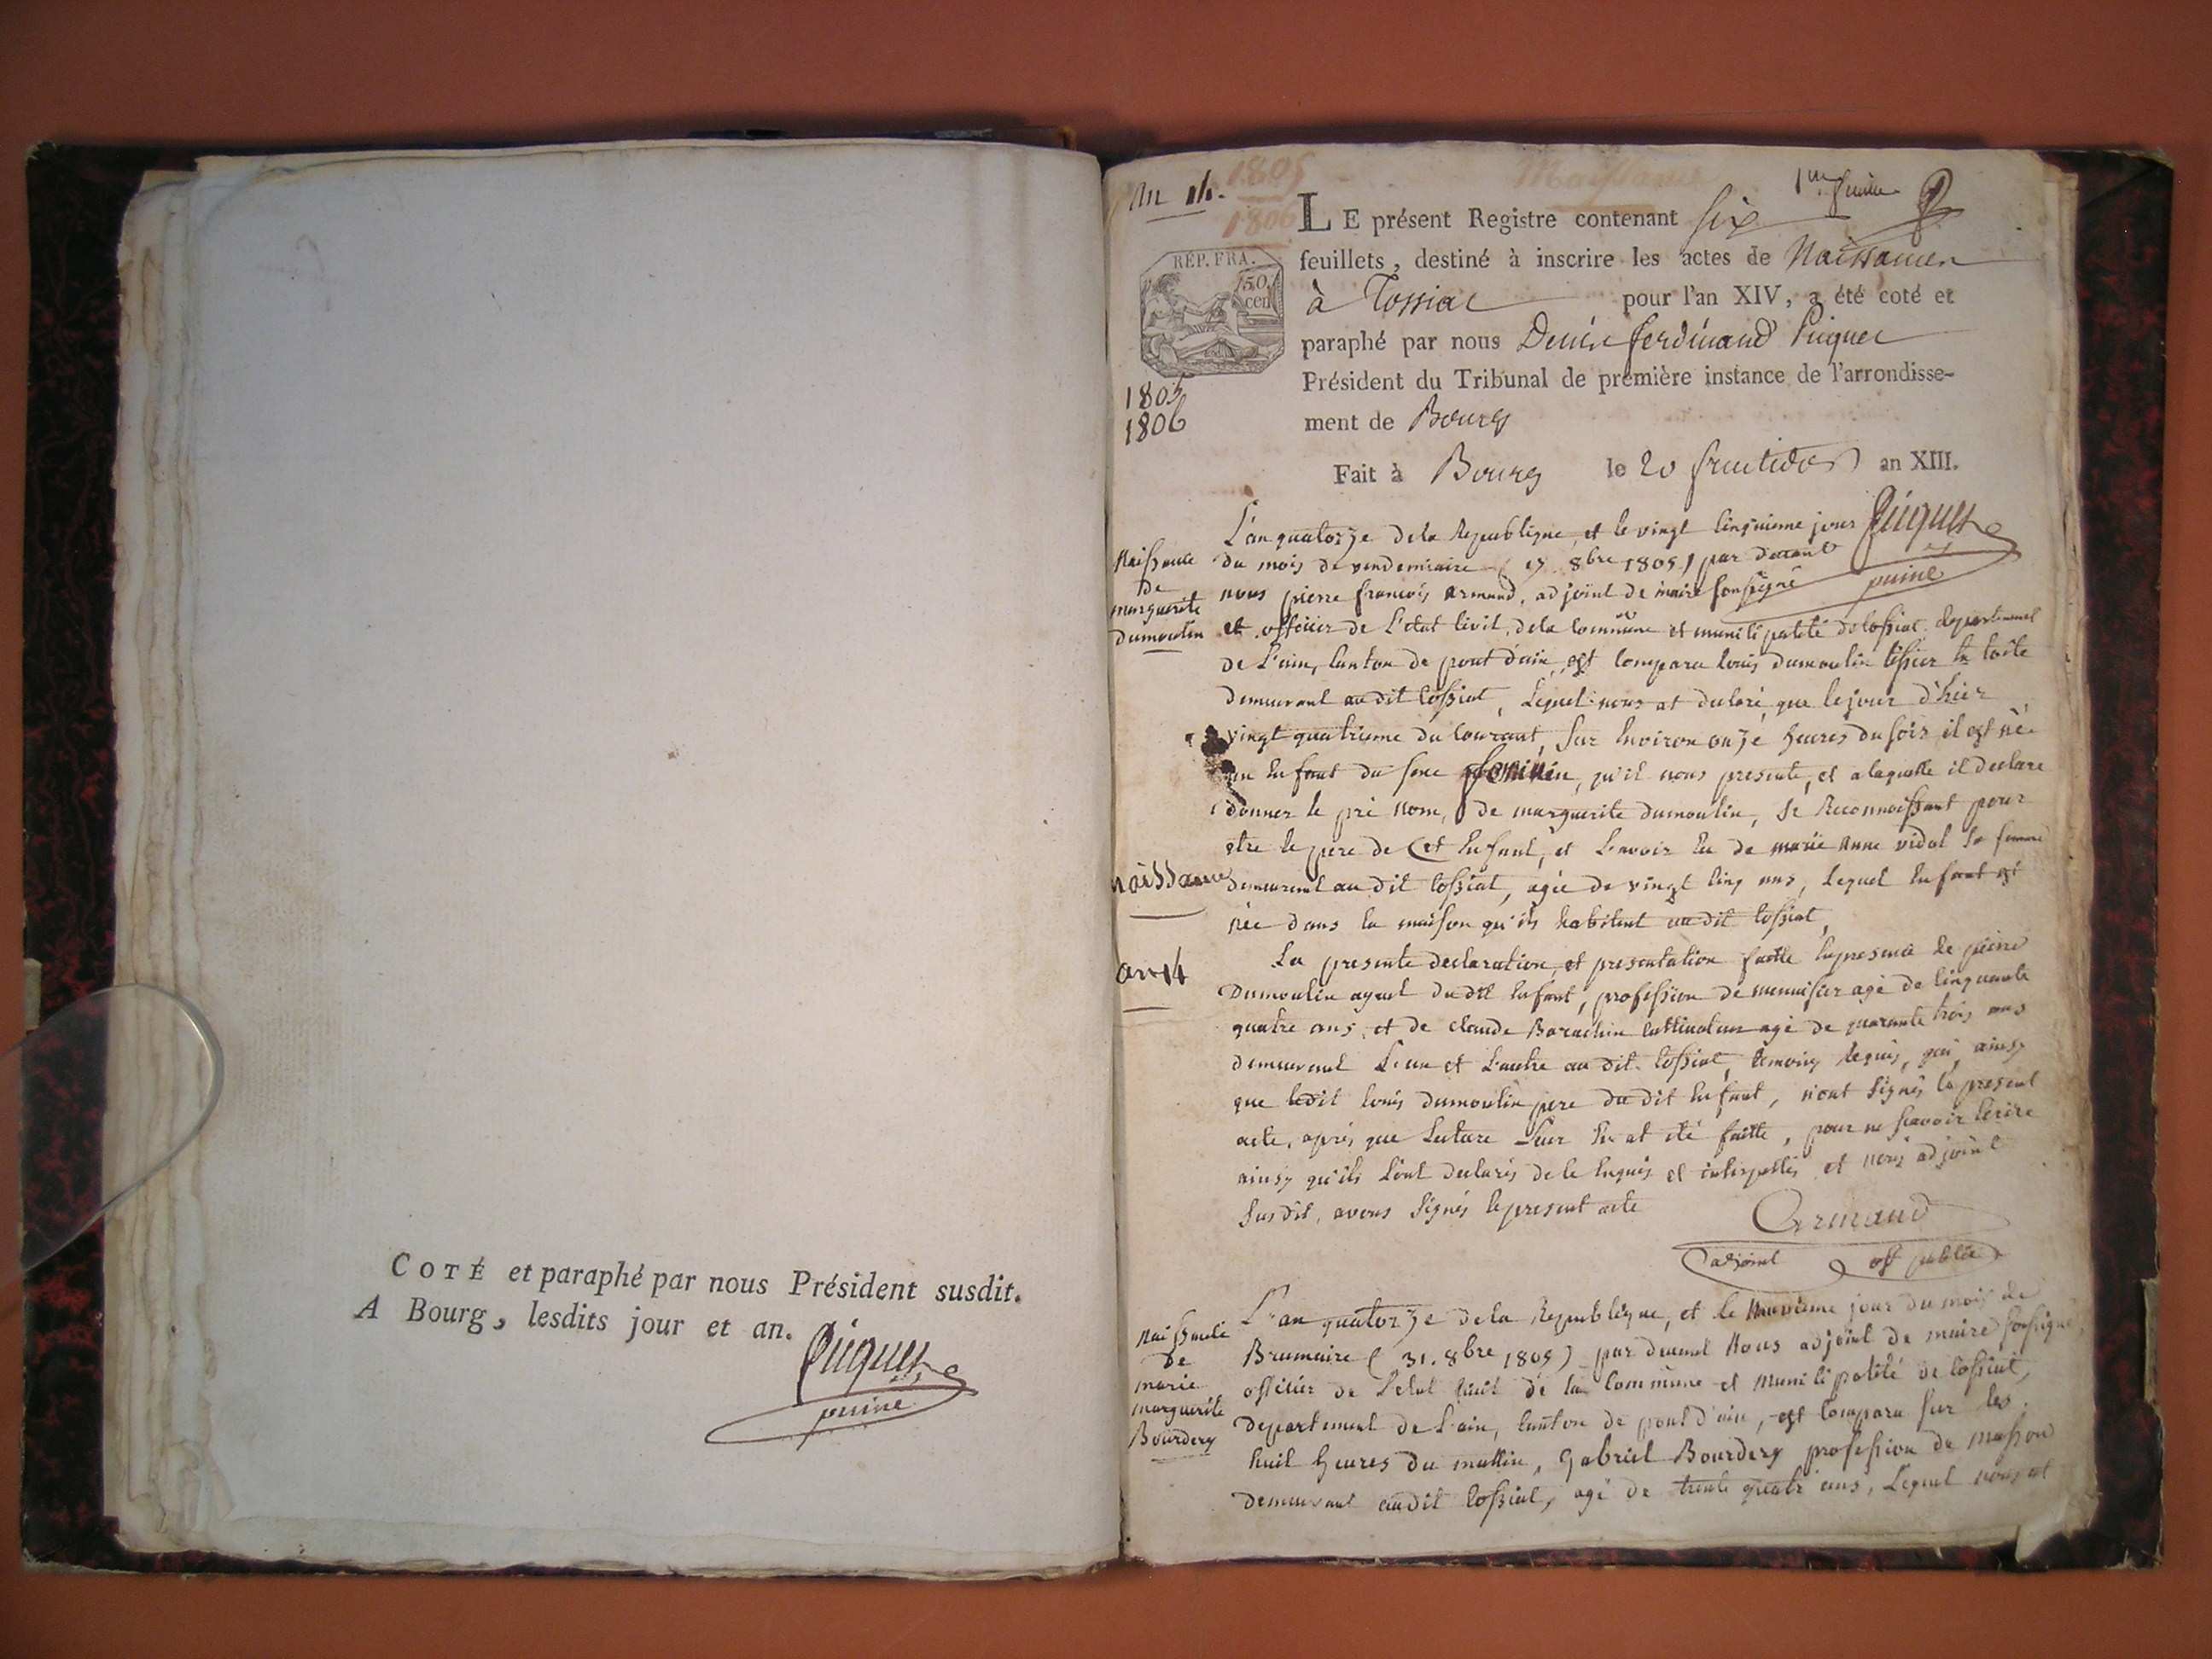 COTÉ et paraphé par nous Président susdit.
A Bourg, lesdits jour et an.
Piquet
puiné
An 14.
1805
1806
Naissances
1er feuillet
RÉP. FRA.
50
cen
1805
1806
LE présent Registre contenant six
feuillets, destiné à inscrire les actes de Naissances
à Tossiat pour l'an XIV, a été coté et
paraphé par nous Denis ferdinand Piquet
Président du Tribunal de première instance de l'arrondisse-
ment de Bourg
Fait à Bourg le 20 fructidor an XIII.
Piquet
puiné
Naissance
de
marguerite
dumoulin
L'an quatorze de la Republique, et le vingt cinquieme jour
du mois de vendemiaire (17 8bre 1805) par devant
nous pierre françois armand, adjoint de maire soussigné
et officier de L'etat civil, de la commune et municipalité de tossiat, departement
de L'ain, canton de pont d'ain, est comparu louis dumoulin tissier en toile
demeurant au dit tossiat, Lequel nous at declaré que le jour d'hier
vingt quatrieme du courant, sur environ onze heures du soir il est né
un enfant du sexe feminin, qu'il nous presente, et a laquelle il declare
donner le pré nom, de marguerite dumoulin, se Reconnoissant pour
etre le pere de cet enfant, et L'avoir eu de marie anne vidal sa femme
demeurant au dit tossiat, agée de vingt cinq ans, Lequel enfant est
née dans la maison qu'ils habitent au dit tossiat,
naissances
an 14
La presente declaration, et presentation faitte en presence de pierre
Dumoulin ayeul du dit enfant, profession de menuisier agé de cinquante
quatre ans, et de claude Barachin cultivateur agé de quarante trois ans
demeurant L'un et L'autre au dit tossiat, temoins requis, qui, ainsy
que ledit louis dumoulin pere du dit enfant, n'ont signés le present
acte, après que Lecture Leur en at été faitte, pour ne sçavoir Ecrire
ainsy qu'ils L'ont declarés de ce enquis et interpellés et nous adjoint
susdit, avons signés le present acte
Armand
adjoint off public
Naissance
de
marie
marguerite
Bourdery
L'an quatorze de la Republique, et le Neuvieme jour du mois de
Brumaire (31. 8bre 1805) par devant Nous adjoint de maire soussigné,
officier de L'etat civil de la commune et municipalité de tossiat,
departement de L'ain, canton de pont d'ain, est comparu sur les
huit heures du mattin, Gabriel Bourdery profession de masson
demeurant audit tossiat, agé de trente quatre ans, Lequel nous at